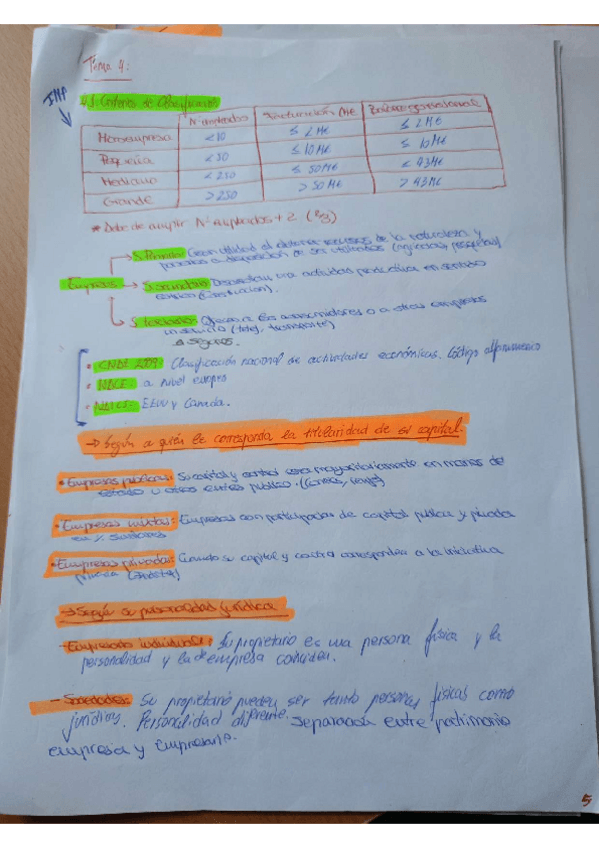 Tema 4:
IMP
4.1 Criterios de Clasificación
Nº empleados Facturación M€ Balance general anual
Microempresa <10 ≤ 2 M€ ≤ 2M€
Pequeña <50 ≤ 10M€ ≤ 10 M€
Mediana <250 ≤ 50M€ ≤ 43M€
Grande >250 > 50M€ > 43M€
* Debe de cumplir Nº empleados + 2
Empresas
S. Primario: Crean utilidad al obtener recursos de la naturaleza y
a disposición de ser utilizados
S. secundario: Desarrollan una actividad productiva en sentido
(construcción).
S. terciario: Ofrecen a los consumidores o a otras empresas
un servicio (hotel, transporte)
seguros.
• CNAE 2009: Clasificación nacional de actividades económicas. Código alfanumérico
• NACE: a nivel europeo
• NAICS: EEUU y Canada.
→ Según a quién le corresponda la titularidad de su capital.
• Empresas públicas: Su capital y control esta mayoritariamente en manos del
estado u otros entes público. (Correos, renfe)
• Empresas mixtas: Empresas con participación de capital publica y privada
• Empresas privadas: Cuando su capital y control corresponden a la iniciativa
privada
→ Según su personalidad jurídica
- Empresario individual: Su propietario es una persona física y la
personalidad y la de empresa coinciden.
- Sociedades: Su propietario pueden ser tanto personas físicas como
jurídicas. Personalidad diferente. Separación entre patrimonio
empresa y empresario.
5